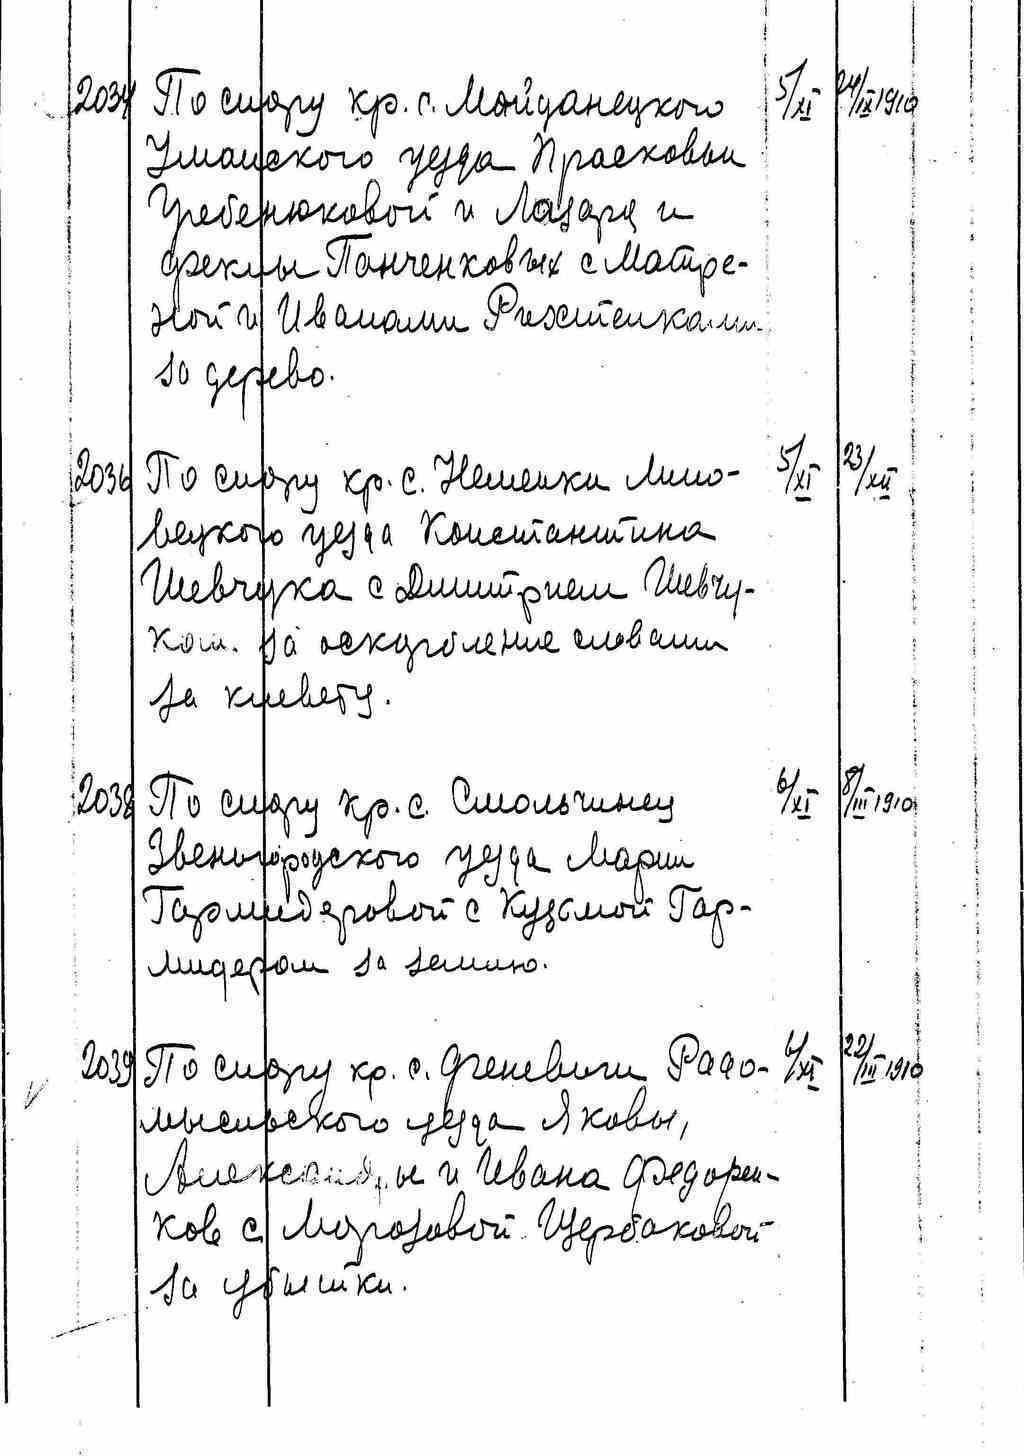 2034 По спору кр. с. Майданецкого 5/XI 24/IX 1910
Уманского уезда Прасковьи
Гребенюковой и Лазаря и
Феклы Панченковых с Матре-
ной и Иванами
за дерево.
2036 По спору кр. с. Неменки Липо- 5/XI 23/XII
вецкого уезда Константина
Шевчука с Дмитрием Шевчу-
ком. за оскорбление словами
за клевету.
2038 По спору кр. с. Смольчинец 6/XI 8/III 1910
Звенигородского уезда Марии
Гармидеровой с Кузьмой Гар-
мидером за землю.
2039 По спору кр. с. Феневичи Радо- 6/XI 22/III 1910
мысльского уезда Яковы,
Александры и Ивана Федорен-
ков с Морозовой Щербаковой
за убытки.